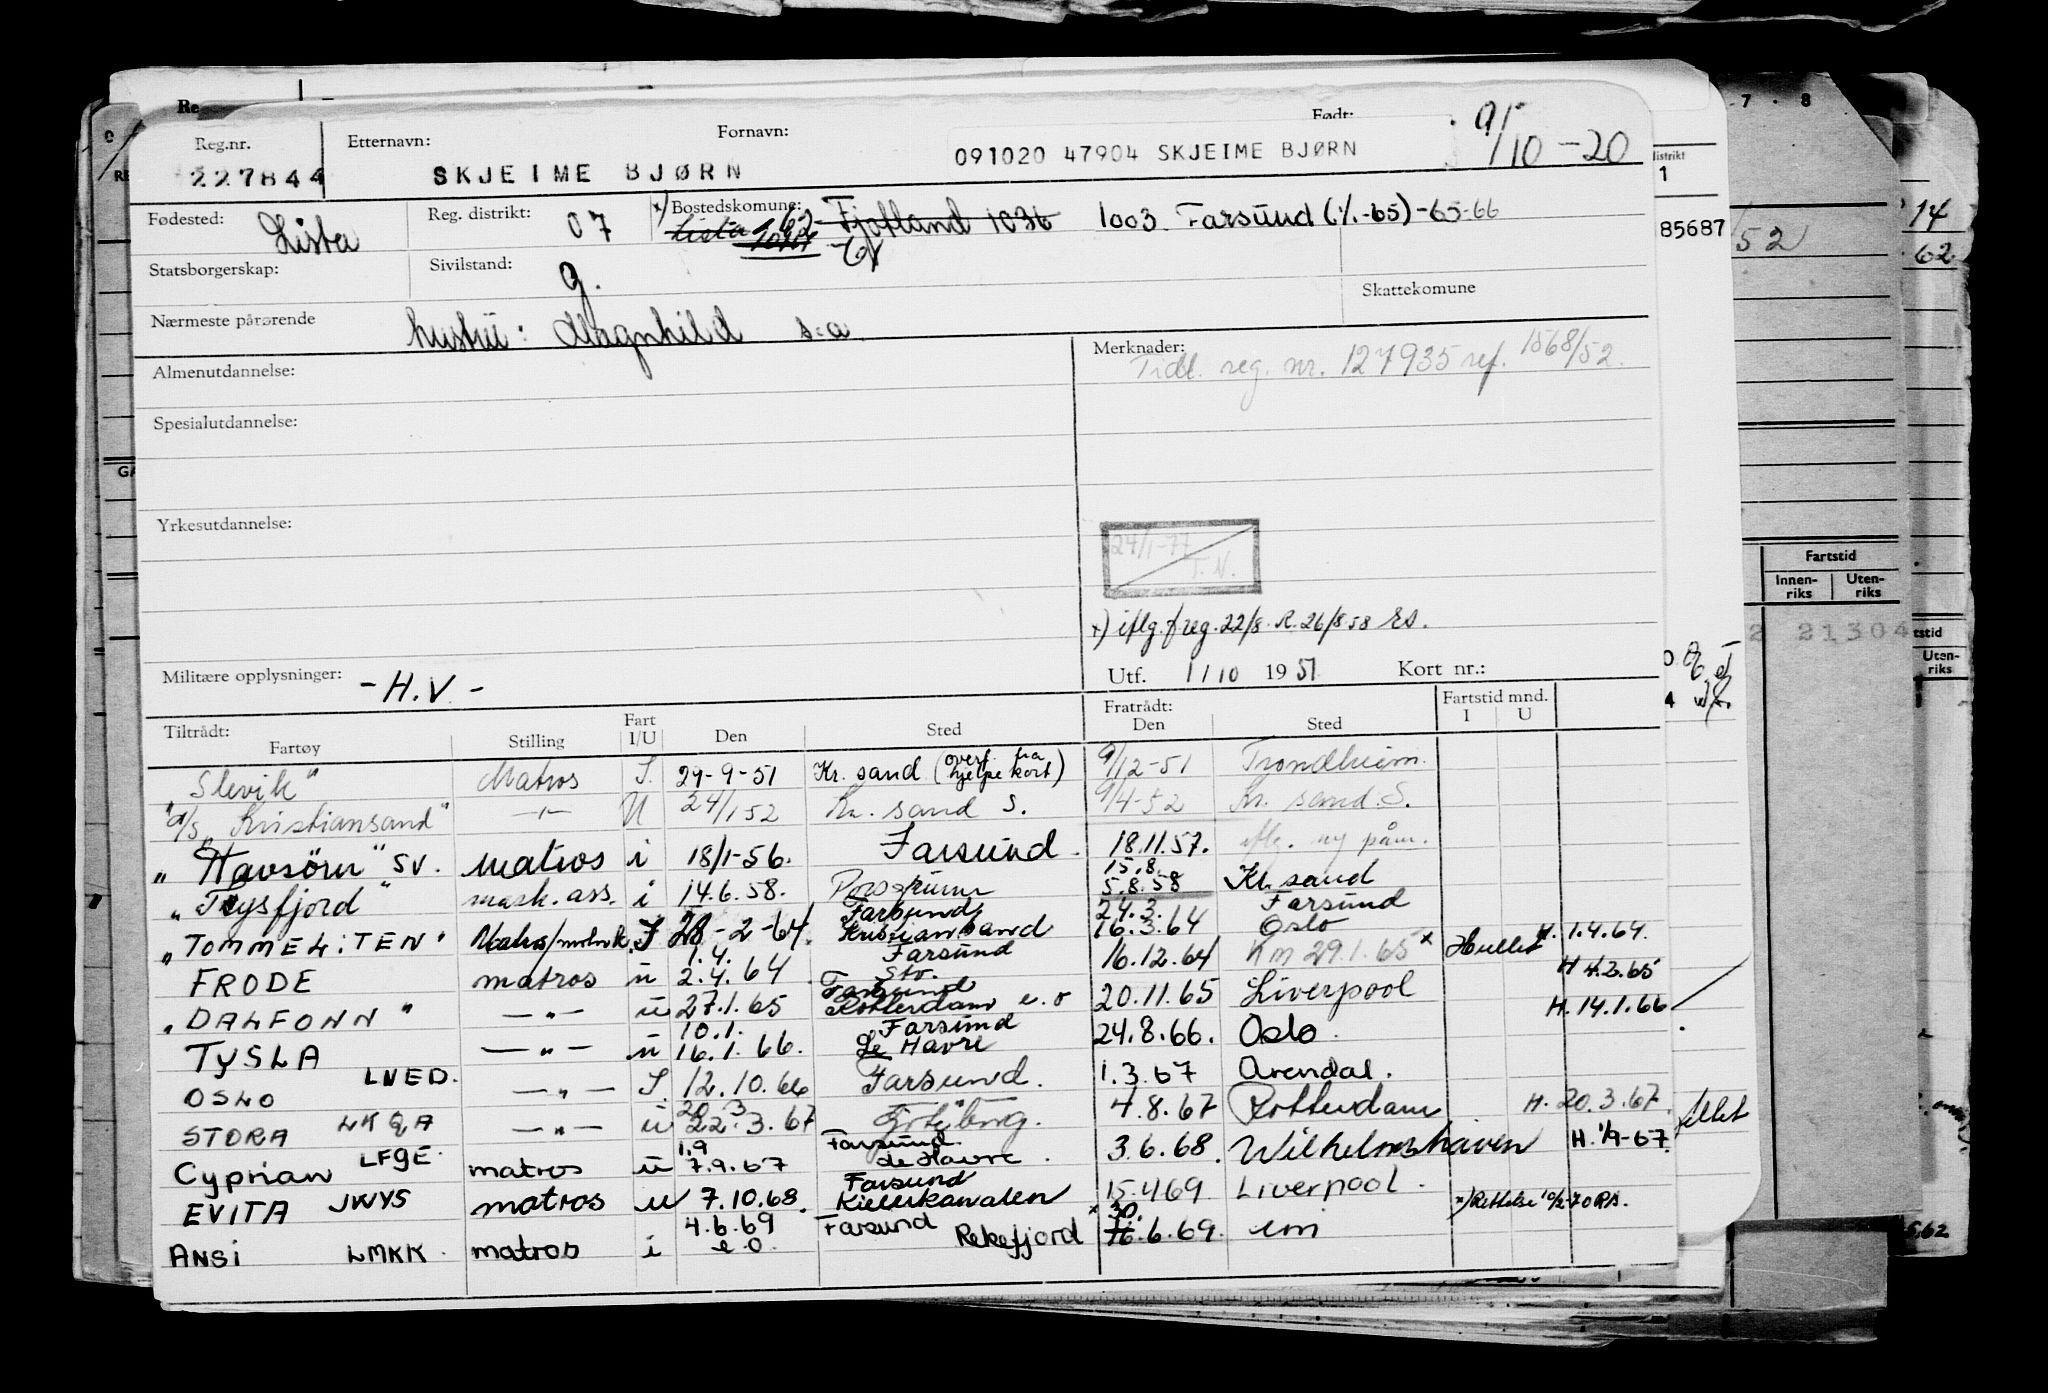 Reg.nr. Etternavn: Fornavn: Født:
227844 SKJEIME BJØRN 091020 47904 SKJEIME BJØRN 9/10-20
Fødested: Lista Reg. distrikt: 07 x) Bostedskomune: Lista 62- Fjotland 1036 1003 Farsund (1/1-65)-65-66
Statsborgerskap: Sivilstand: g.
Skattekomune
Nærmeste pårørende hustru: Magnhild s.a.
Almenutdannelse: Merknader: Tidl. reg. nr. 127935 ref. 1568/52.
Spesialutdannelse:
Yrkesutdannelse:
24/1-77 T.N.
x) iflg. f.reg. 22/8. R. 26/8 58 RS.
Militære opplysninger: -H.V- Utf. 1/10 1951 Kort nr.:
Tiltrådt: Fartøy Stilling Fart I/U Den Sted Fratrådt: Den Sted Fartstid mnd. I U
"Slevik" Matros I. 29-9-51 Kr. sand (overf. fra hjelpekort) 9/12-51 Trondheim.
"D/S "Kristiansand" -"- U 24/1 52 Kr. sand S. 9/4-52 Kr. sand. S.
"Havsørn" SV. matros i 18/1-56. Farsund. 18.11.57. iflg. ny påm.
"Tysfjord" mask. ass. i 14.6.58. Porsgrunn 15.8. 5.8.58 Kr. sand
"TOMMELITEN" Matros/motork. I 28-2-64. Farsund Kristiansand 24.3. 16.3.64 Farsund Oslo H. 1.4.64.
FRODE matros u 1.4. 2.4.64 Farsund Stv. 16.12.64 Km 29.1.65 x Hullet H 4.2.65
"DALFONN" -"- u 27.1.65 Farsund Rotterdam e.o 20.11.65 Liverpool H. 14.1.66
TYSLA -"- u 10.1. 16.1.66. Farsund Le Havre 24.8.66. Oslo.
OSLO LNED. -"- I. 12.10.66 Farsund. 1.3.67 Arendal.
STORA LKQA -"- u 20.3 22.3.67 Gøteborg. 4.8.67 Rotterdam H. 20.3.67. slettet
Cyprian LFGE. matros u 1.9 7.9.67 Farsund de Havre. 3.6.68. Wilhelmshaven H. 1/9-67.
EVITA JWYS matros u 7.10.68. Farsund Kielerkanalen 15.4 69 Liverpool. x) Rettelse 10/2-70 RS.
ANSI LMKK. matros i 4.6.69 e.o. Farsund Rekefjord x 30. 16.6.69. uni
distrikt
1
85687
52
7 . 8
14
62
Fartstid
Innen-riks Uten-riks
2 21304
Uten-riks